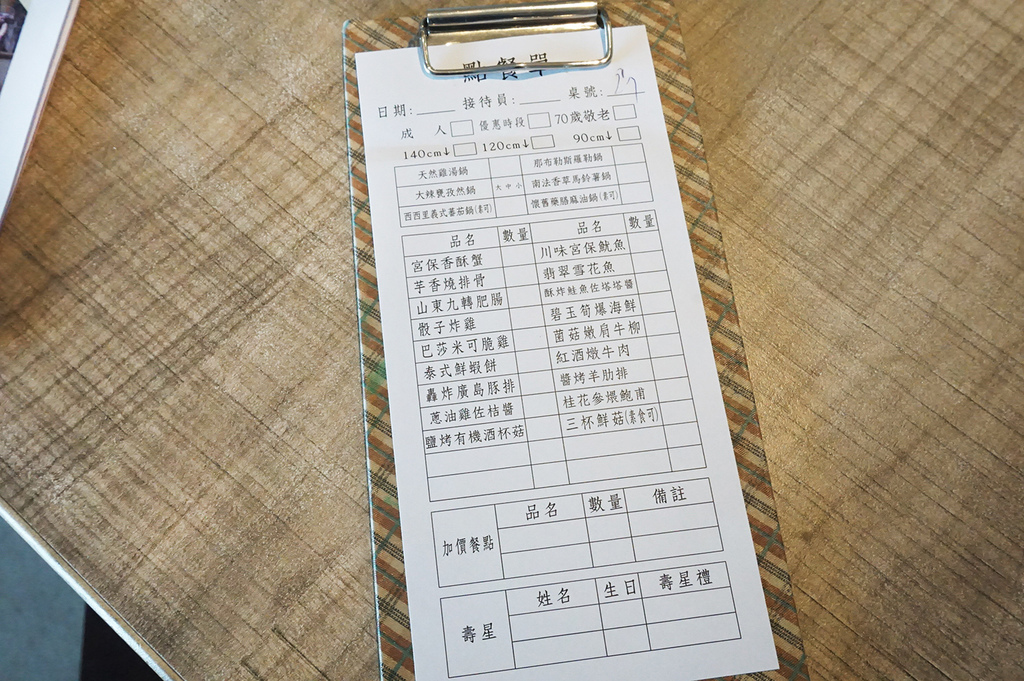 點餐單
日期: 接待員: 桌號:
成 人 優惠時段 70歲敬老
140cm↓ 120cm↓ 90cm↓
天然雞湯鍋 那布勒斯羅勒鍋
大辣甕孜然鍋 大 中 小 南法香草馬鈴薯鍋
西西里義式蕃茄鍋(素可) 懷舊藥膳麻油鍋(素可)
品名 數量 品名 數量
宮保香酥蟹 川味宮保魷魚
芋香燒排骨 翡翠雪花魚
山東九轉肥腸 酥炸鮭魚佐塔塔醬
骰子炸雞 碧玉筍爆海鮮
巴莎米可脆雞 菌菇嫩肩牛柳
泰式鮮蝦餅 紅酒燉牛肉
轟炸廣島豚排 醬烤羊肋排
蔥油雞佐桔醬 桂花參煨鮑甫
鹽烤有機酒杯菇 三杯鮮菇(素食可)
品名 數量 備註
加價餐點
姓名 生日 壽星禮
壽星